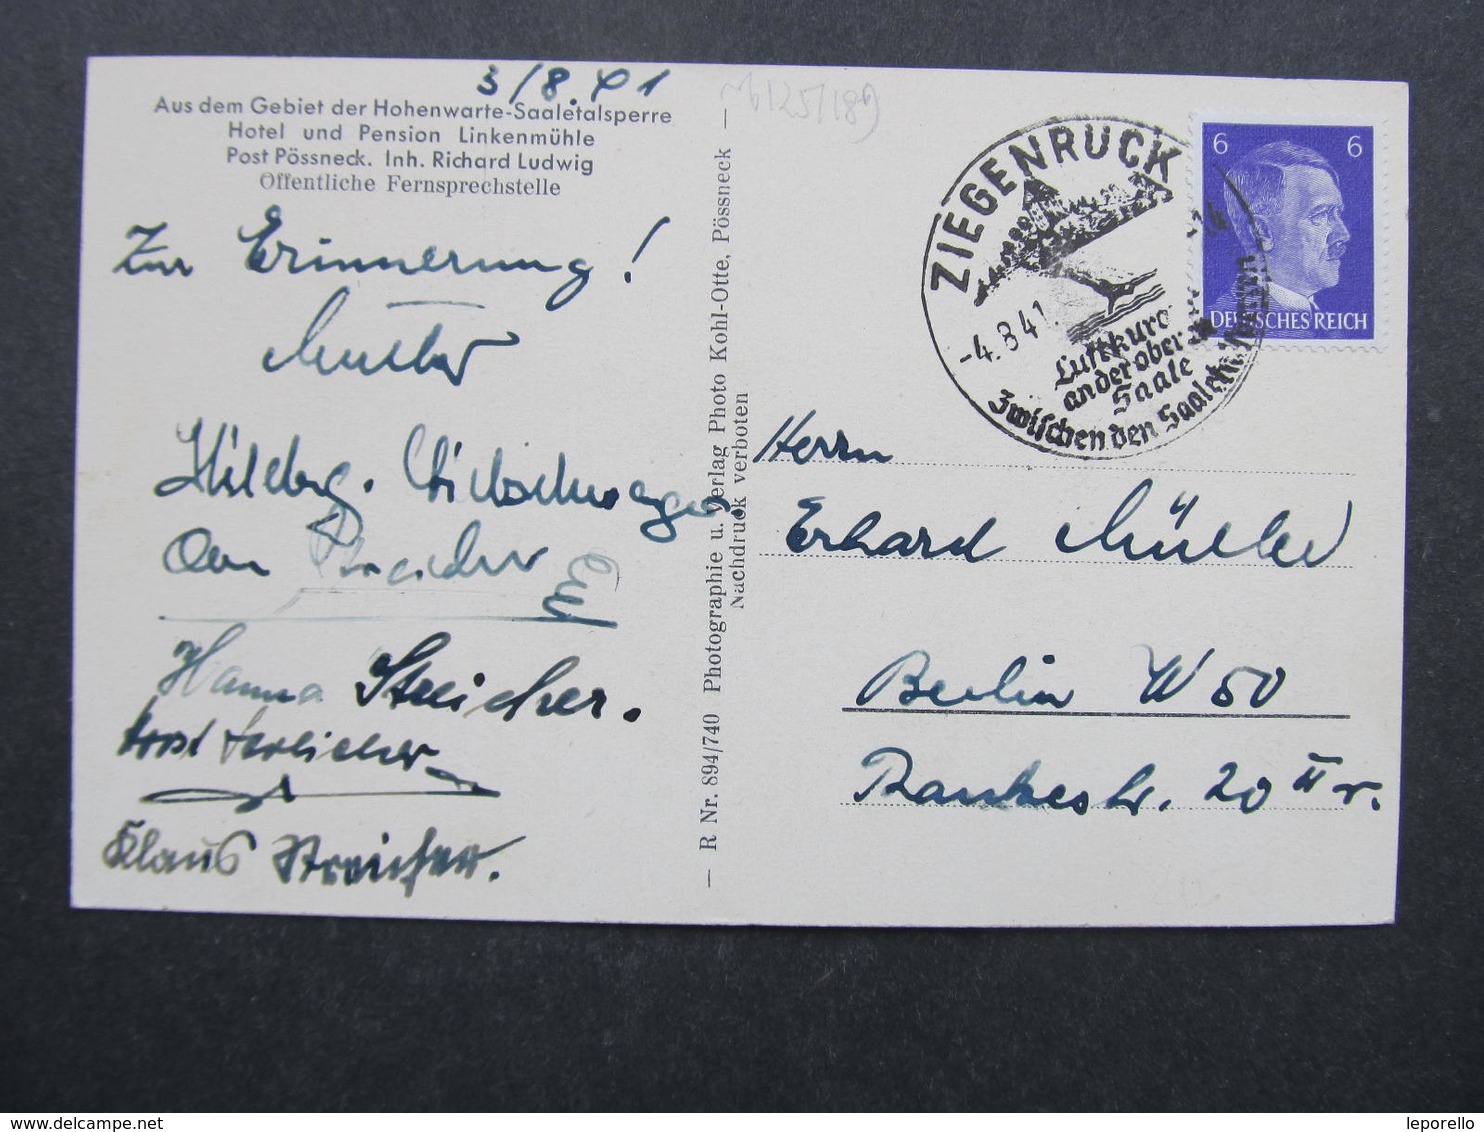 3/8.41
Aus dem Gebiet der Hohenwarte-Saaletalsperre
Hotel und Pension Linkenmühle
Post Pössneck. Inh. Richard Ludwig
Öffentliche Fernsprechstelle
Zur Erinnerung!
Mutter
Hanna Streicher.
Klaus Streicher.
— R Nr. 894/740 Photographie u. Verlag Photo Kohl-Otte, Pössneck —
Nachdruck verboten
ZIEGENRÜCK
-4.8.41.
Luftkurort
an der oberen
Saale
Zwischen den Saaletalsperren
6 6
DEUTSCHES REICH
Herrn
Erhard Müller
Berlin W 50
Rankestr. 20 II r.
leporello